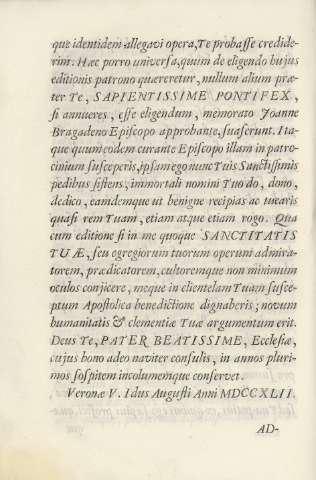 que identidem allegavi opera, Te probasse credide-
rim. Hæc porro universa, quum de eligendo hujus
editionis patrono quæreretur, nullum alium præ-
ter Te, SAPIENTISSIME PONTIFEX,
si annueres, esse eligendum, memorato Joanne
Bragadeno Episcopo approbante, suaserunt. Ita-
que quum eodem curante Episcopo illam in patro-
cinium susceperis, ipsam ego nunc Tuis Sanctissimis
pedibus sistens, immortali nomini Tuo do, dono,
dedico, eamdemque ut benigne recipias ac tuearis
quasi rem Tuam, etiam atque etiam rogo. Qua
cum editione si in me quoque SANCTITATIS
TUÆ, seu egregiorum tuorum operum admira-
torem, prædicatorem, cultoremque non minimum
oculos conjicere, meque in clientelam Tuam susce-
ptum Apostolica benedictione dignaberis; novum
humanitatis & clementiæ Tuæ argumentum erit.
Deus Te, PATER BEATISSIME, Ecclesiæ,
cujus bono adeo naviter consulis, in annos pluri-
mos sospitem incolumemque conservet.
Veronæ V. Idus Augusti Anni MDCCXLII.
AD-